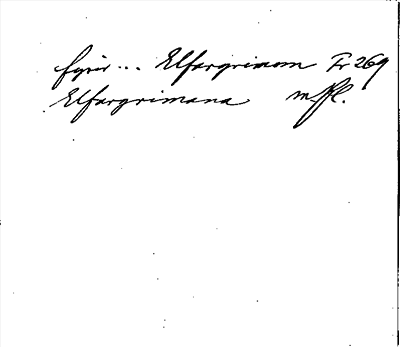 fyrir ... Elfargrimom Fr 269
Elfargrimana m. Pl.